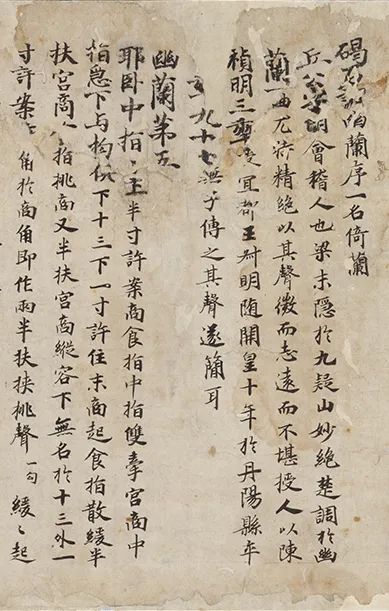 碣石調幽蘭序一名倚蘭
丘公字明會稽人也梁末隱於九疑山妙絕楚調於幽
蘭一曲尤特精絕以其聲微而志遠而不堪授人以陳
禎明三年授宜都王叔明隨開皇十年於丹陽縣卒
年九十七無子傳之其聲遂簡耳
幽蘭第五
耶臥中指半寸許案商食指中指雙牽宮商中
指急下與拘俱下十三下一寸許住末商起食指散緩半
扶宮商食指挑商又半扶宮商縱容下無名於十三外一
寸許案商角於商角即作兩半扶挾挑聲一句緩〻起